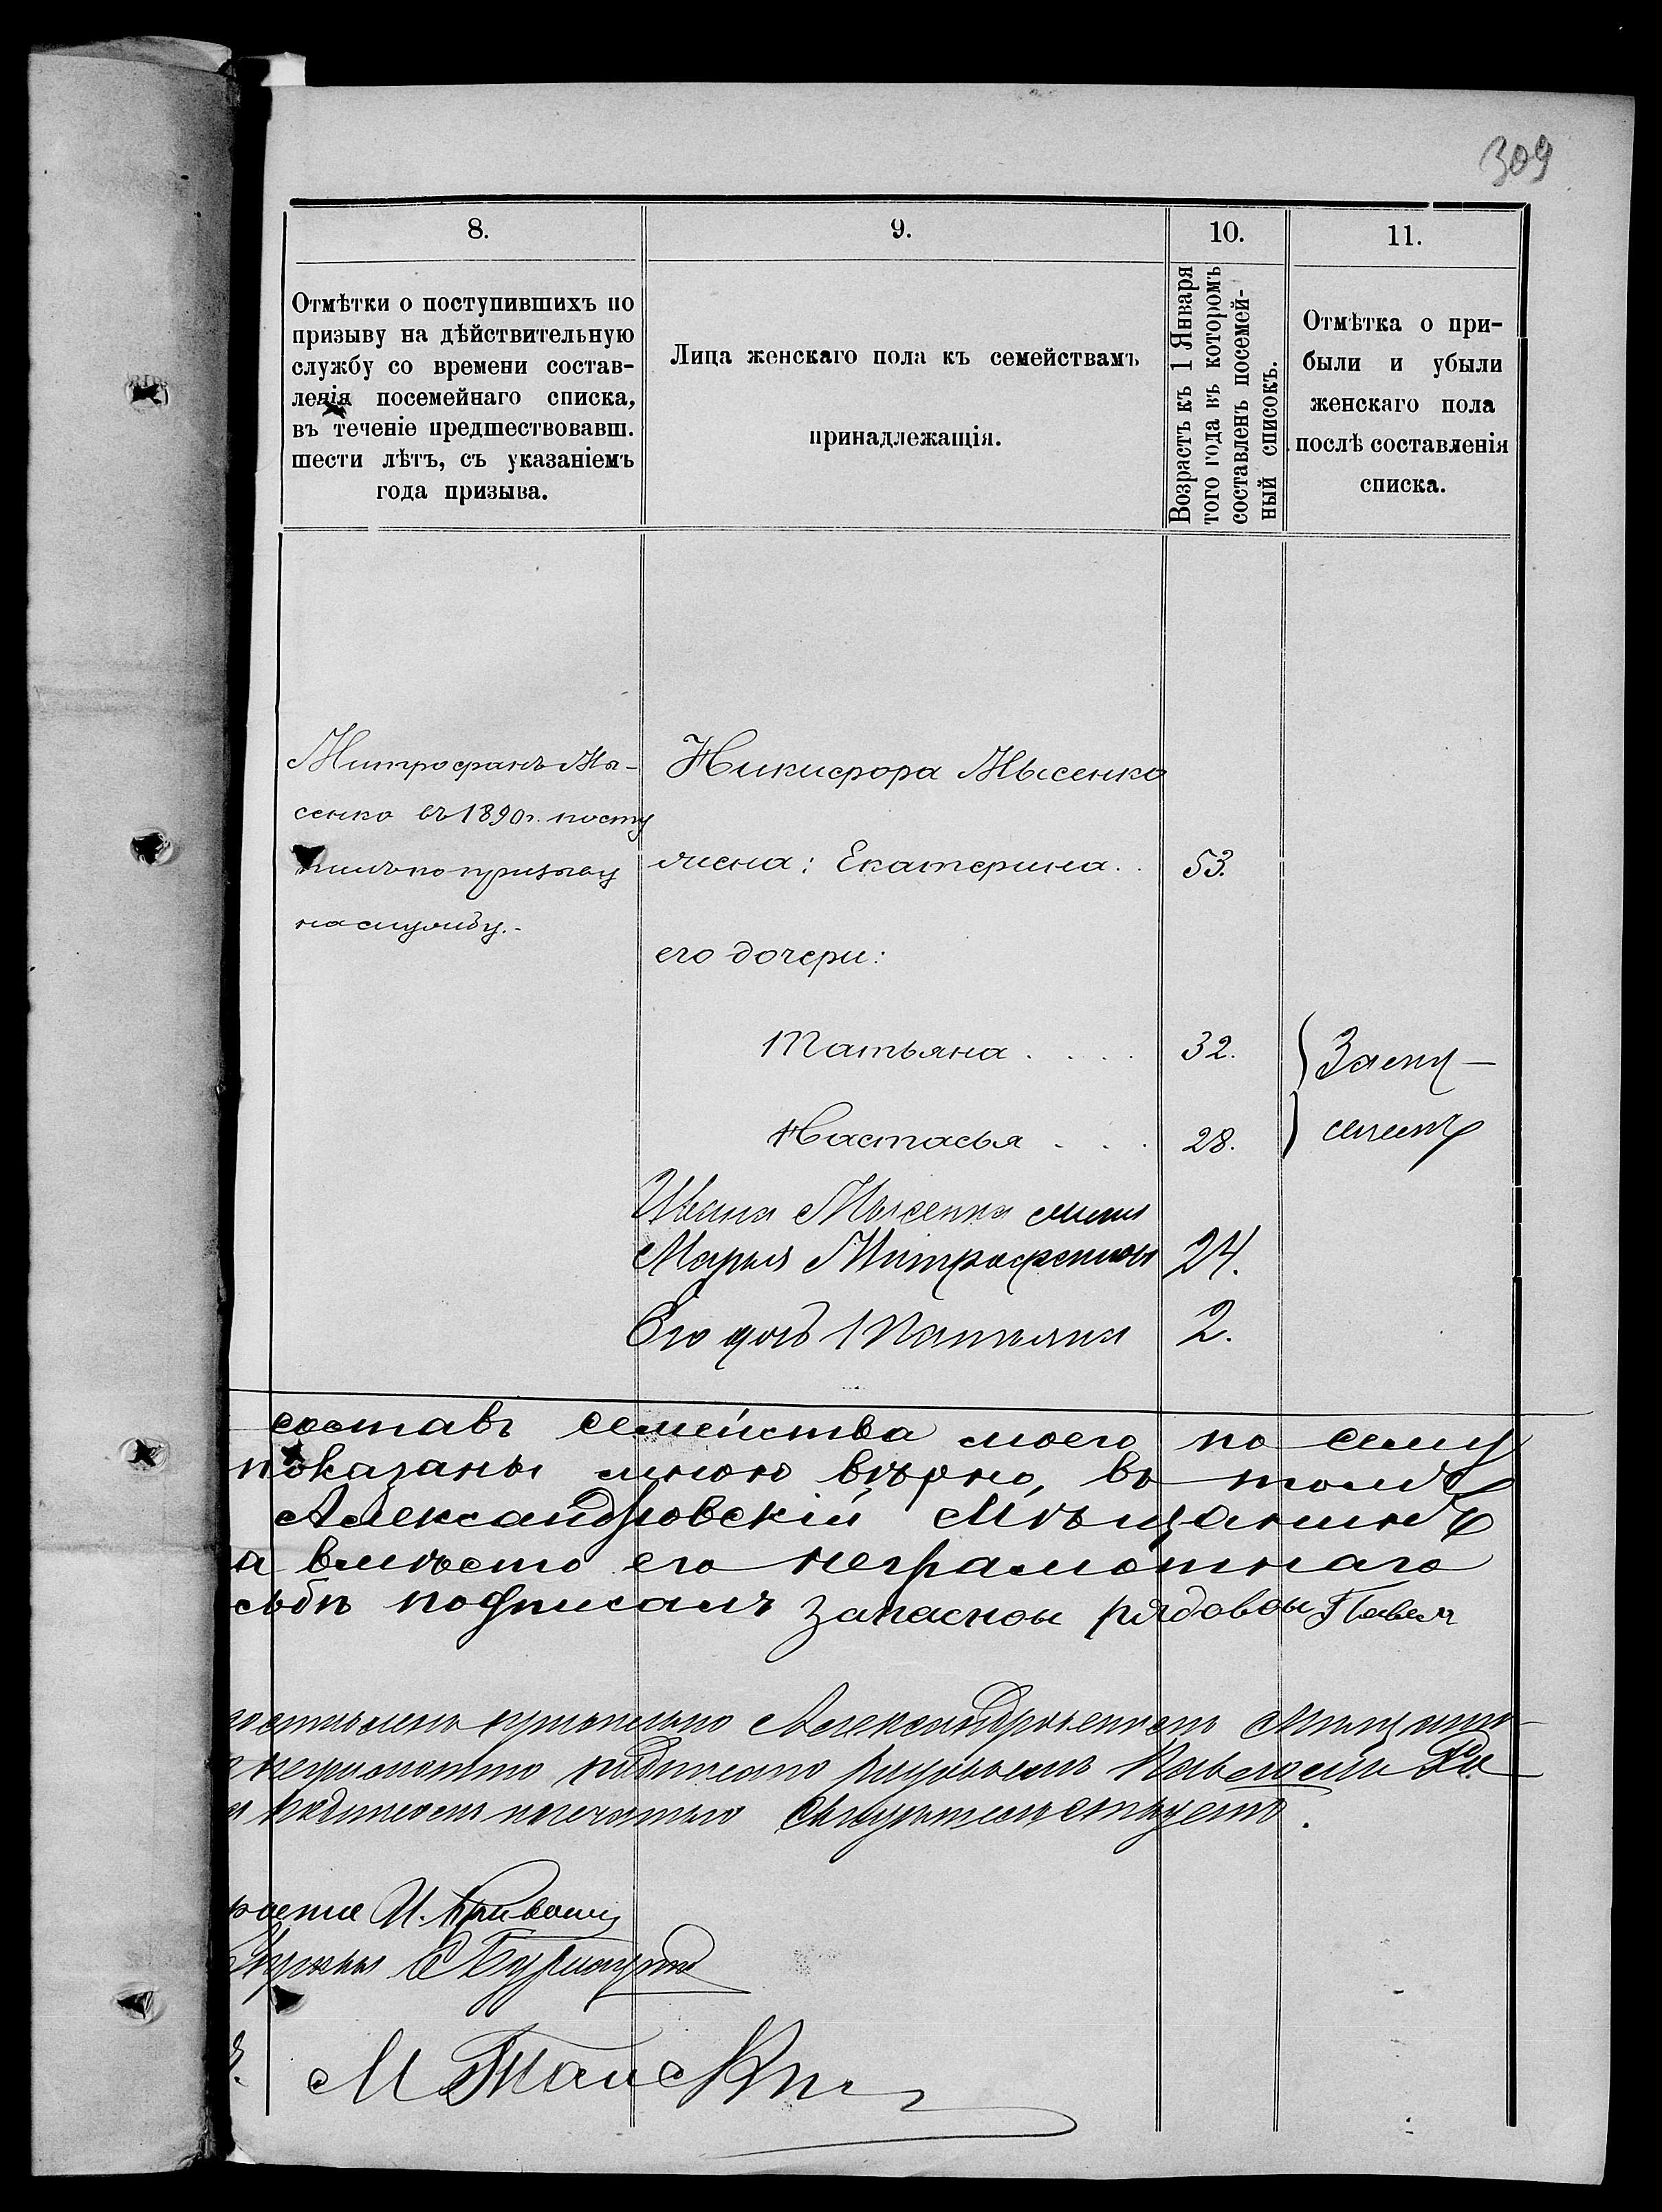 309
8.
Отмѣтки о поступившихъ по
призыву на дѣйствительную
службу со времени состав-
ленія посемейнаго списка,
въ теченіе предшествовавш.
шести лѣтъ, съ указаніемъ
года призыва.
9.
Лица женскаго пола къ семействамъ
принадлежащія.
10.
Возрастъ къ 1 Января
того года въ которомъ
составленъ посемей-
ный списокъ.
11.
Отмѣтка о при-
были и убыли
женскаго пола
послѣ составленія
списка.
Митрофанъ Мы-
сенко въ 1890 г. посту
пилъ по призыву
на службу.-
Никифора Мысенко
жена: Екатерина . . 53.
его дочери:
Татьяна . . . . 32.
Настасья . . . 28.
Заму-
жемъ
Ивана Мысенка жена
Марья Митрофанова 24.
Его дочь Татьяна 2.
составъ семейства моего по сему
показаны мною вѣрно, въ томъ
Александровскій Мѣщанинъ
а вмѣсто его неграмотнаго
подписалъ запасной рядовой Павел
Александровскимъ
неграмотно подписано рядовымъ Павломъ
печатью свидѣтельствуетъ.
роста И.
С
М